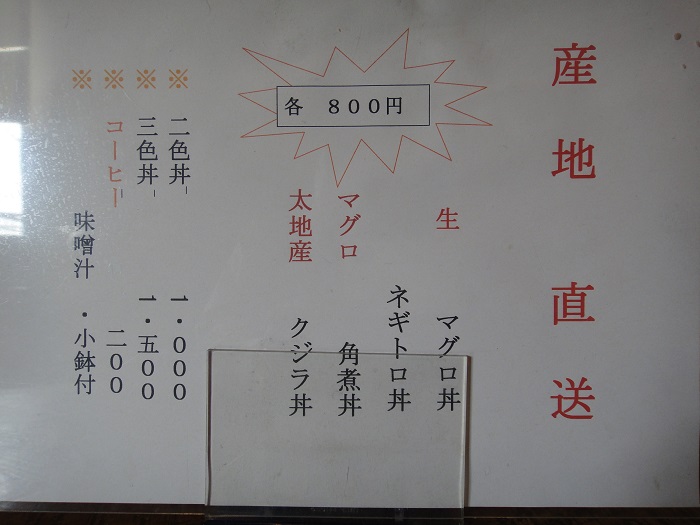 産地直送
各 800円
生 マグロ丼
ネギトロ丼
マグロ 角煮丼
太地産 クジラ丼
※ 二色丼 一・000
※ 三色丼 一・五00
※ コーヒー 二00
※ 味噌汁・小鉢付